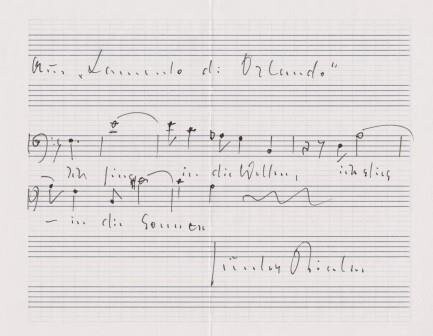 Aus „Lamento di Orlando"
– Ich in die Wellen, ich stieg
– in die Sonnen
Günter Bialas